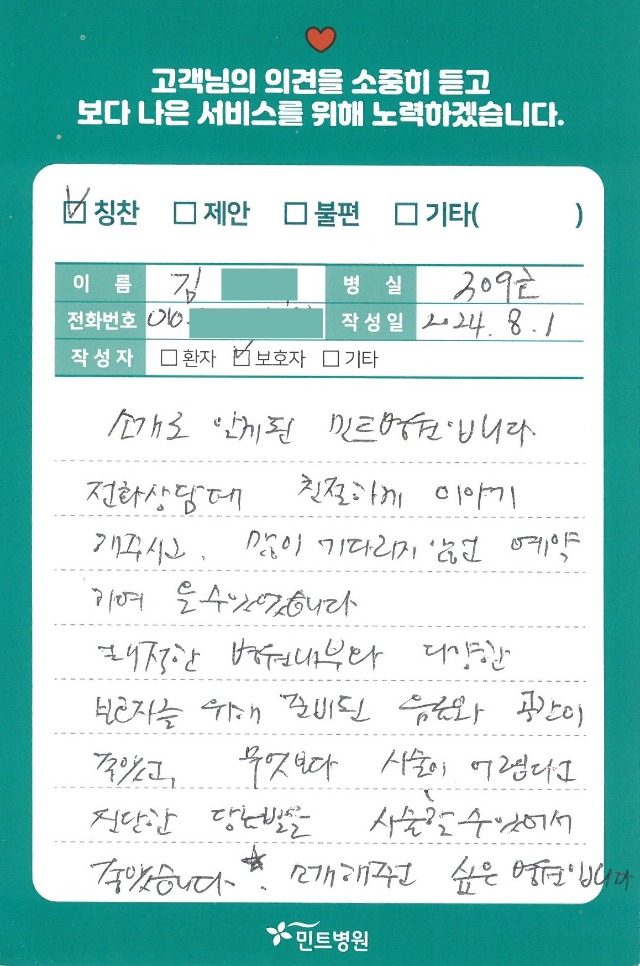 고객님의 의견을 소중히 듣고
보다 나은 서비스를 위해 노력하겠습니다.
☑ 칭찬 □ 제안 □ 불편 □ 기타( )
이 름 김 병 실 309호
전화번호 010. 작성일 2024. 8. 1
작성자 □ 환자 ☑ 보호자 □ 기타
소개로 알게된 민트병원입니다
전화상담때 친절하게 이야기
해주시고. 많이 기다리지 않고 예약
하여 올수있었습니다
쾌적한 병원내부와 다양한
보호자를 위해 준비된 음료와 공간이
좋았고, 무엇보다 시술이 어렵다고
진단한 당뇨발을 시술할 수 있어서
좋았습니다. 소개해주고 싶은 병원입니다
민트병원